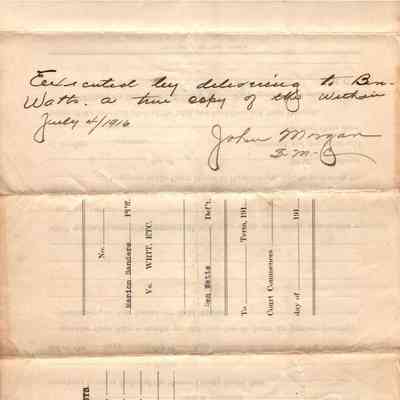 Executed by delivering to Ben
Watts. a true copy of the within
July 4/1916
John Morgan
S.M.C
No.
Marion Sanders Pl'ff.
Vs. WRIT, ETC.
Ben Watts Def't.
To Term, 191
Court Commences
day of 191